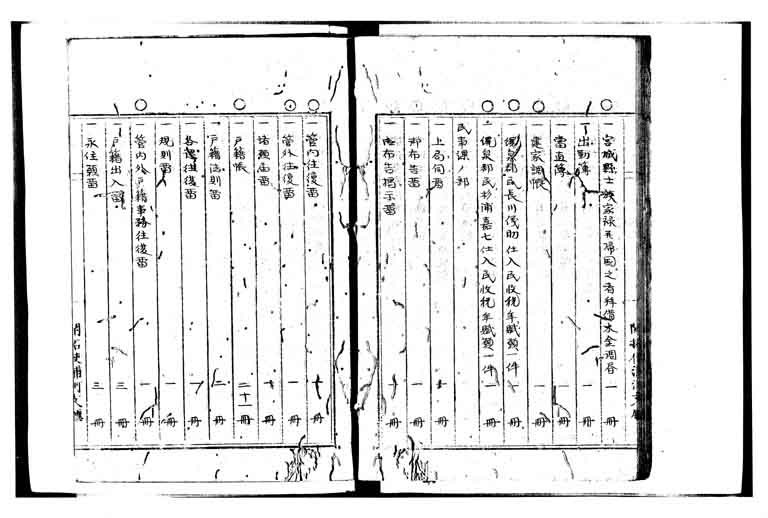 一 宮城縣士族家禄 帰国之者拝借 金調書 一冊
一 出勤簿 一冊
一 當直簿 一冊
一 建家調帳 一冊
一 郡民長川 助仕入民収税年賦願一件 一冊
一 郡民杉浦嘉七仕入民収税年賦願一件 一冊
民事課ノ部
一 上局伺書 一冊
一 郡布告書 一冊
一 布告掲示書 一冊
一 管内往復書 冊
一 管外往復書 一冊
一 諸願届書 冊
一 戸籍帳 二十一冊
一 戸籍法則書 二冊
一 各課往復書 冊
一 規則書 一冊
一 管内外戸籍事務往復書 一冊
一 戸籍出入書 三冊
一 永住願書 三冊